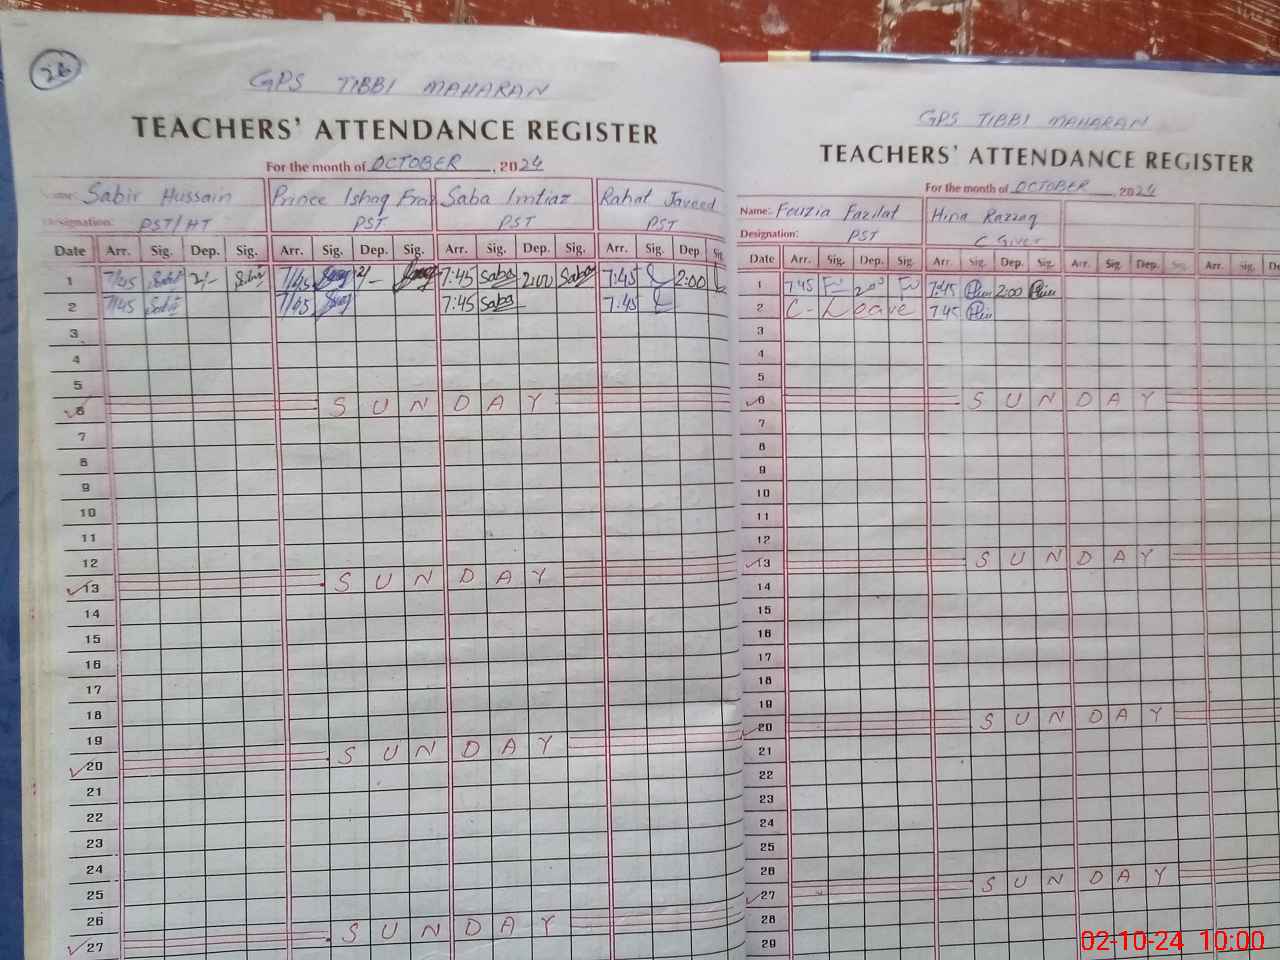 26
GPS TIBBI MAHARAN
TEACHERS' ATTENDANCE REGISTER
For the month of OCTOBER, 2024
Name: Sabir Hussain Prince Ishaq Fraz Saba Imtiaz Rahat Javeed
Designation: PST/HT PST PST PST
Date Arr. Sig. Dep. Sig. Arr. Sig. Dep. Sig. Arr. Sig. Dep. Sig. Arr. Sig. Dep Sig.
1 7/45 Sabir 2/- Sabir 7/45 2/- 7:45 Saba 2:00 Saba 7:45 2:00
2 7/45 Sabir 7/45 7:45 Saba 7:45
3
4
5
6 SUNDAY
7
8
9
10
11
12
13 SUNDAY
14
15
16
17
18
19
20 SUNDAY
21
22
23
24
25
26
27 SUNDAY
GPS TIBBI MAHARAN
TEACHERS' ATTENDANCE REGISTER
For the month of OCTOBER 2024
Name: Fouzia Fazilat Hina Razzaq
Designation: PST C Giver
Date Arr. Sig. Dep. Sig. Arr. Sig. Dep. Sig. Arr. Sig. Dep. Sig. Arr. Sig. De
1 7:45 2:00 7:45 2:00
2 C-Leave 7:45
3
4
5
6 SUNDAY
7
8
9
10
11
12
13 SUNDAY
14
15
16
17
18
19
20 SUNDAY
21
22
23
24
25
26
27 SUNDAY
28
29
02-10-24 10:00